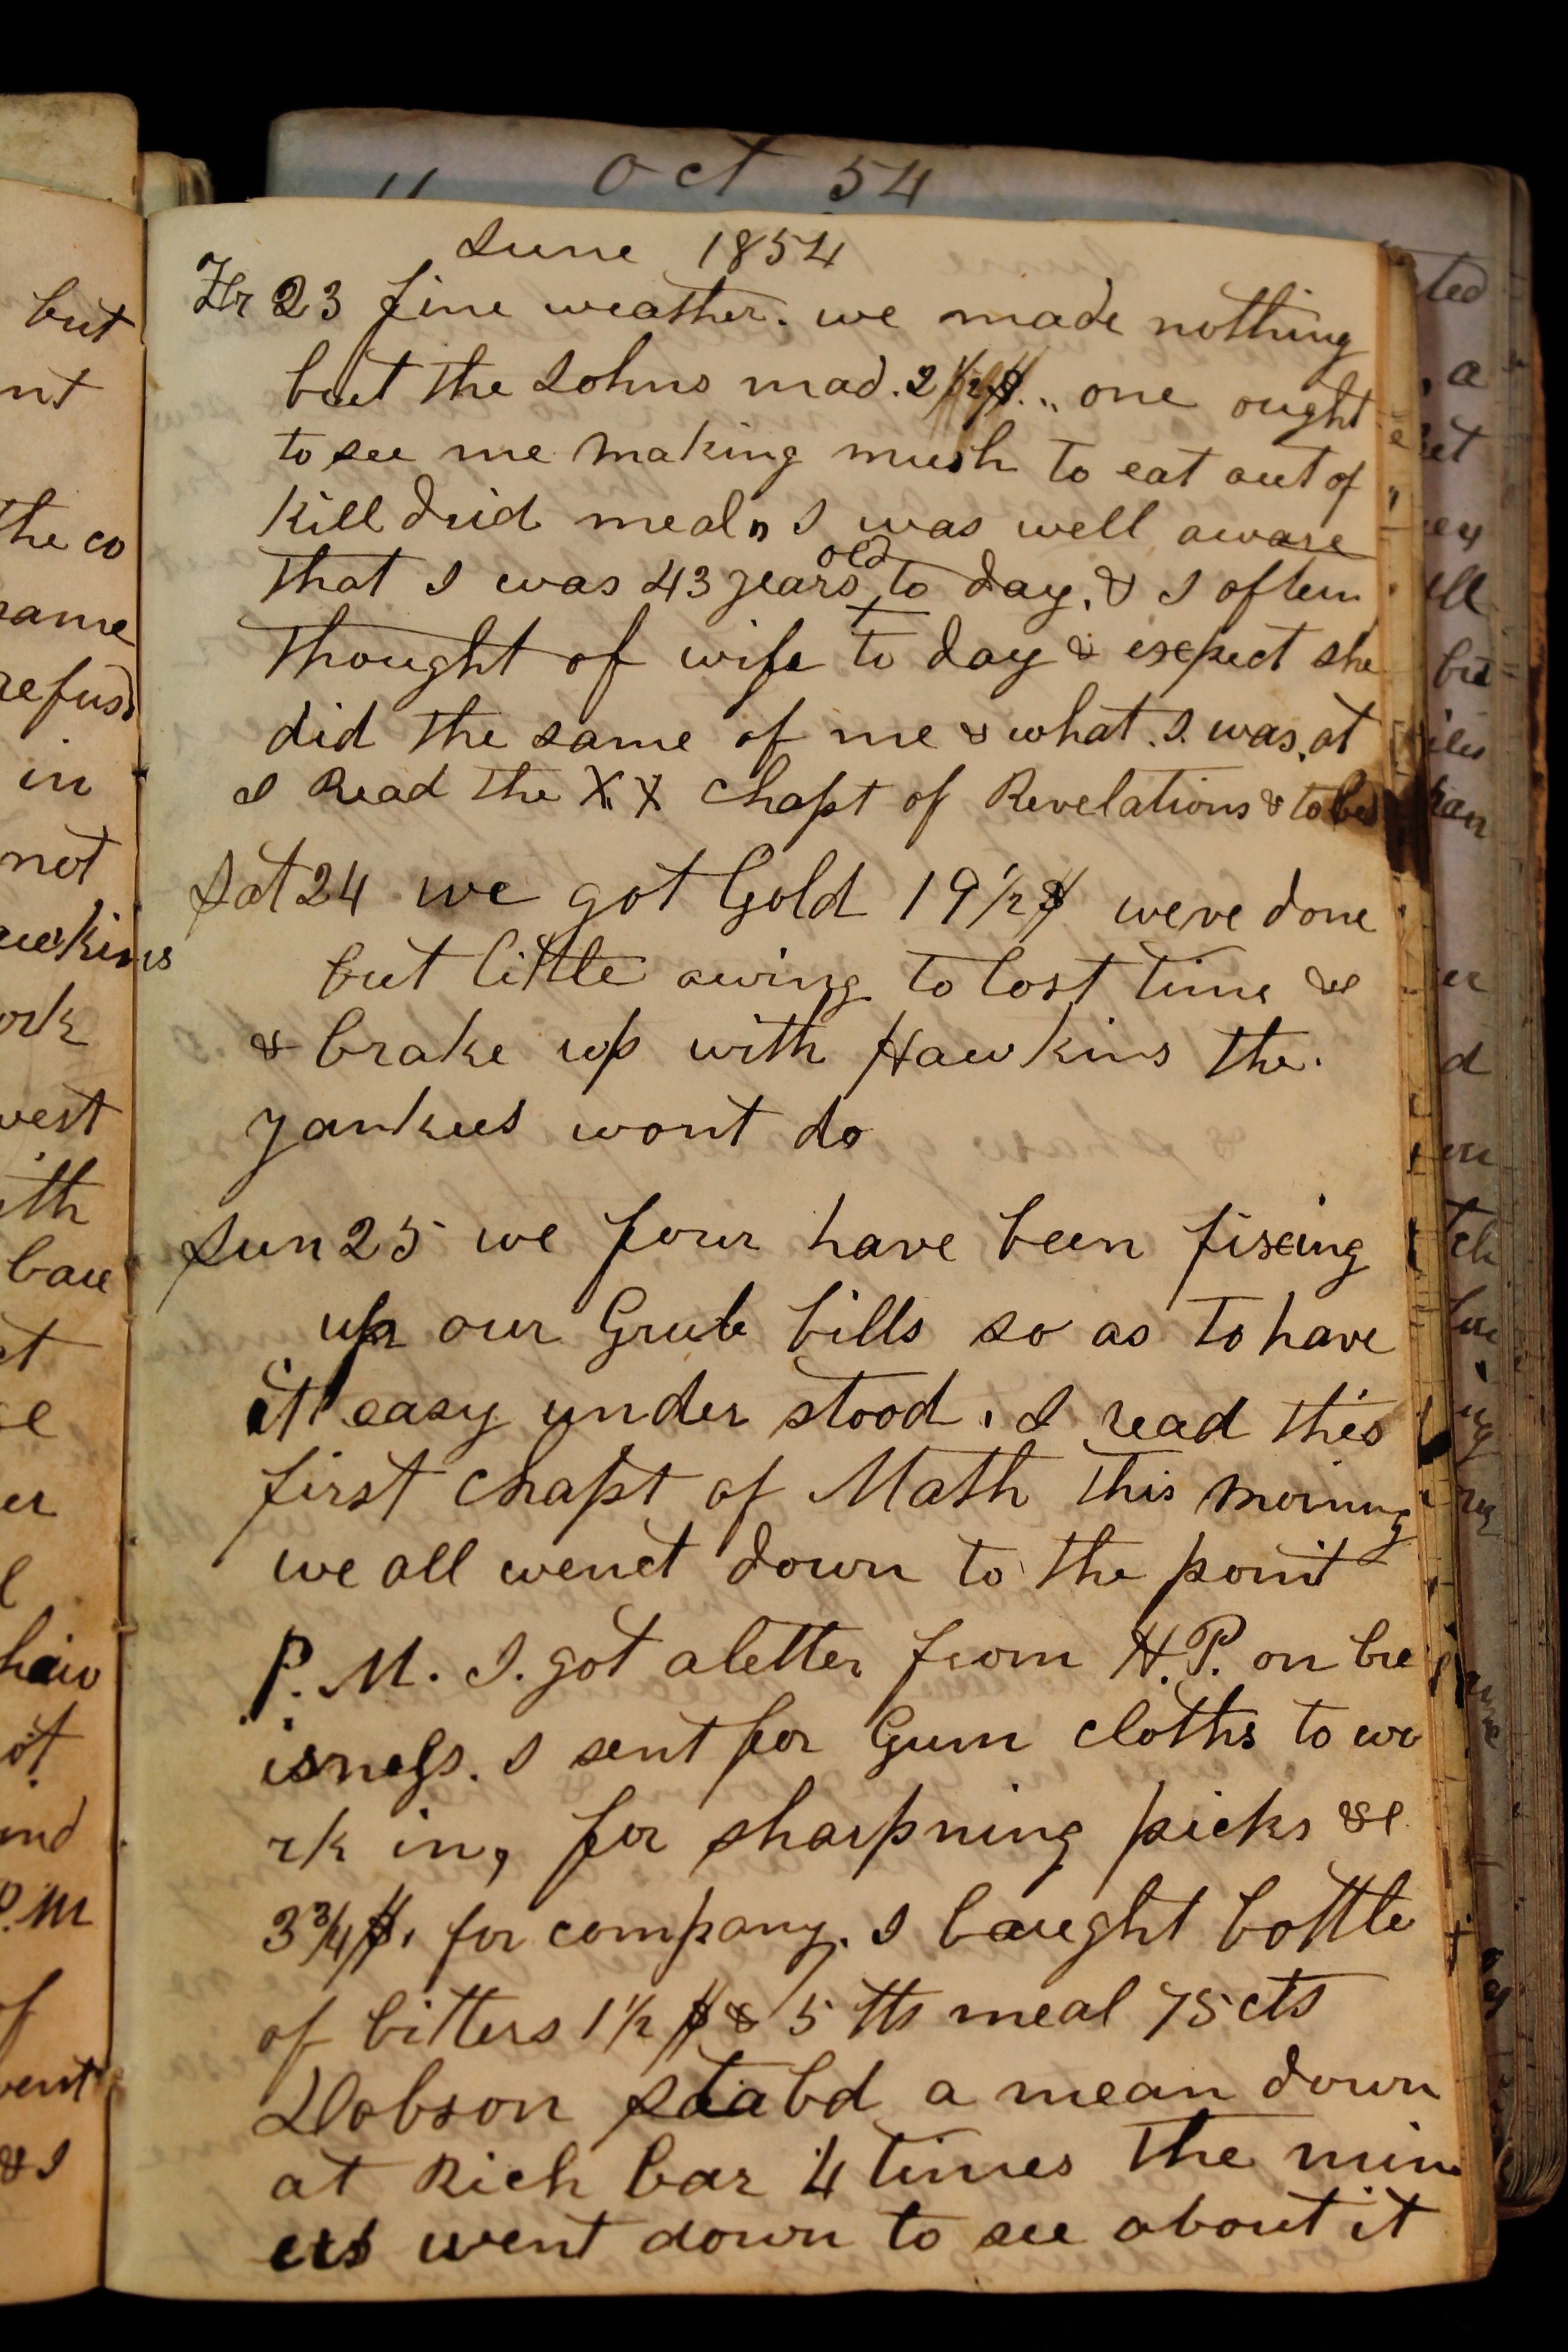 Oct 54
June 1854
Fr 23 fine weather. we made nothing
but the Johns mad. 2 1/2 $. .. one ought
to see me making mush to eat out of
Kill drid meal, I was well aware
that I was 43 years old to day, & I often
thought of wife to day & expect she
did the same of me & what. I. was. at
I Read the XX Chapt of Revelations & to bed
Sat 24 we got Gold 19 1/2 $ weve done
but little owing to lost time &c
& brake up with Hawkins the.
yankees wont do
Sun 25 we four have been fixing
up our Grub bills so as to have
it easy under stood. I read this
first Chapt of Math this morning
we all went down to the point
P. M. I. got a letter from H. P. on bu
isness. I sent for Gum cloths to wo
rk in, for sharpning picks &c
3 3/4 $, for company. I baught bottle
of bitters 1 1/2 $ & 5 lbs meal 75 cts
Dobson stabd a mean down
at Rich bar 4 times the min
ers went down to see about it